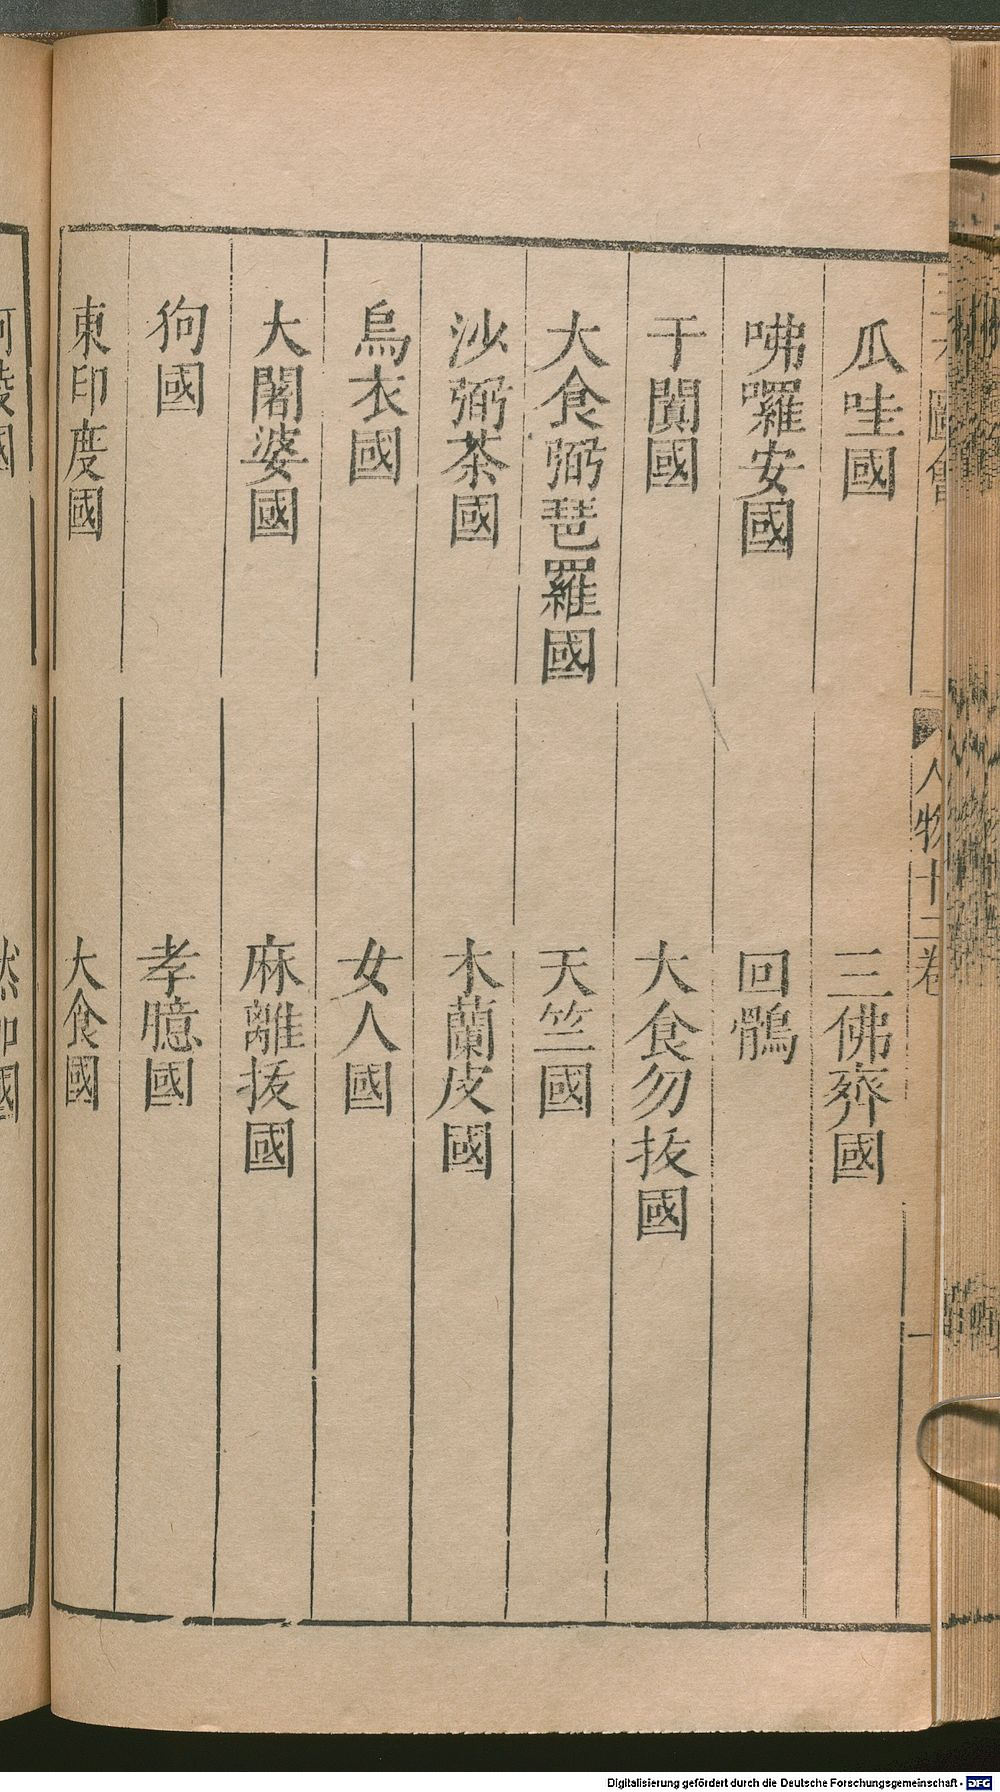 瓜哇國
三佛齊國
咈囉安國
回鶻
于闐國
大食勿拔國
大食弼琶羅國
天竺國
沙弼茶國
木蘭皮國
烏衣國
女人國
大闍婆國
麻離拔國
狗國
孝臆國
東印度國
大食國
人物十二卷
一
Digitalisierung gefördert durch die Deutsche Forschungsgemeinschaft - DFG